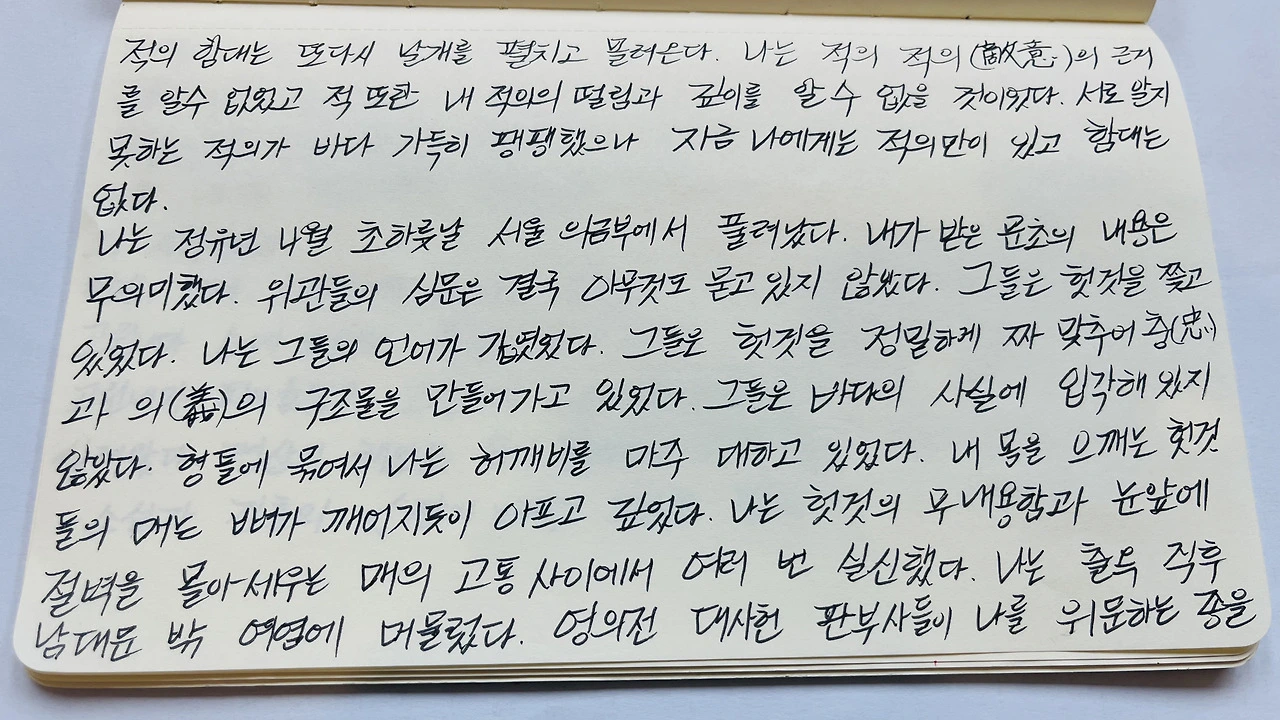 적의 함대는 또다시 날개를 펼치고 몰려온다. 나는 적의 적의(敵意)의 근거
를 알수 없었고 적 또한 내 적의의 떨림과 깊이를 알 수 없을 것이었다. 서로 알지
못하는 적의가 바다 가득히 팽팽했으나 지금 나에게는 적의만이 있고 함대는
없다.
나는 정유년 4월 초하룻날 서울 의금부에서 풀려났다. 내가 받은 문초의 내용은
무의미했다. 위관들의 심문은 결국 아무것도 묻고 있지 않았다. 그들은 헛것을 쫓고
있었다. 나는 그들의 언어가 가엾었다. 그들은 헛것을 정밀하게 짜 맞추어 충(忠)
과 의(義)의 구조물을 만들어가고 있었다. 그들은 바다의 사실에 입각해 있지
않았다. 형틀에 묶여서 나는 허깨비를 마주 대하고 있었다. 내 몸을 으깨는 헛것
들의 매는 뼈가 깨어지듯이 아프고 깊었다. 나는 헛것의 무내용함과 눈앞에
절벽을 몰아세우는 매의 고통 사이에서 여러 번 실신했다. 나는 출옥 직후
남대문 밖 여염에 머물렀다. 영의전 대사헌 판부사들이 나를 위문하는 종을